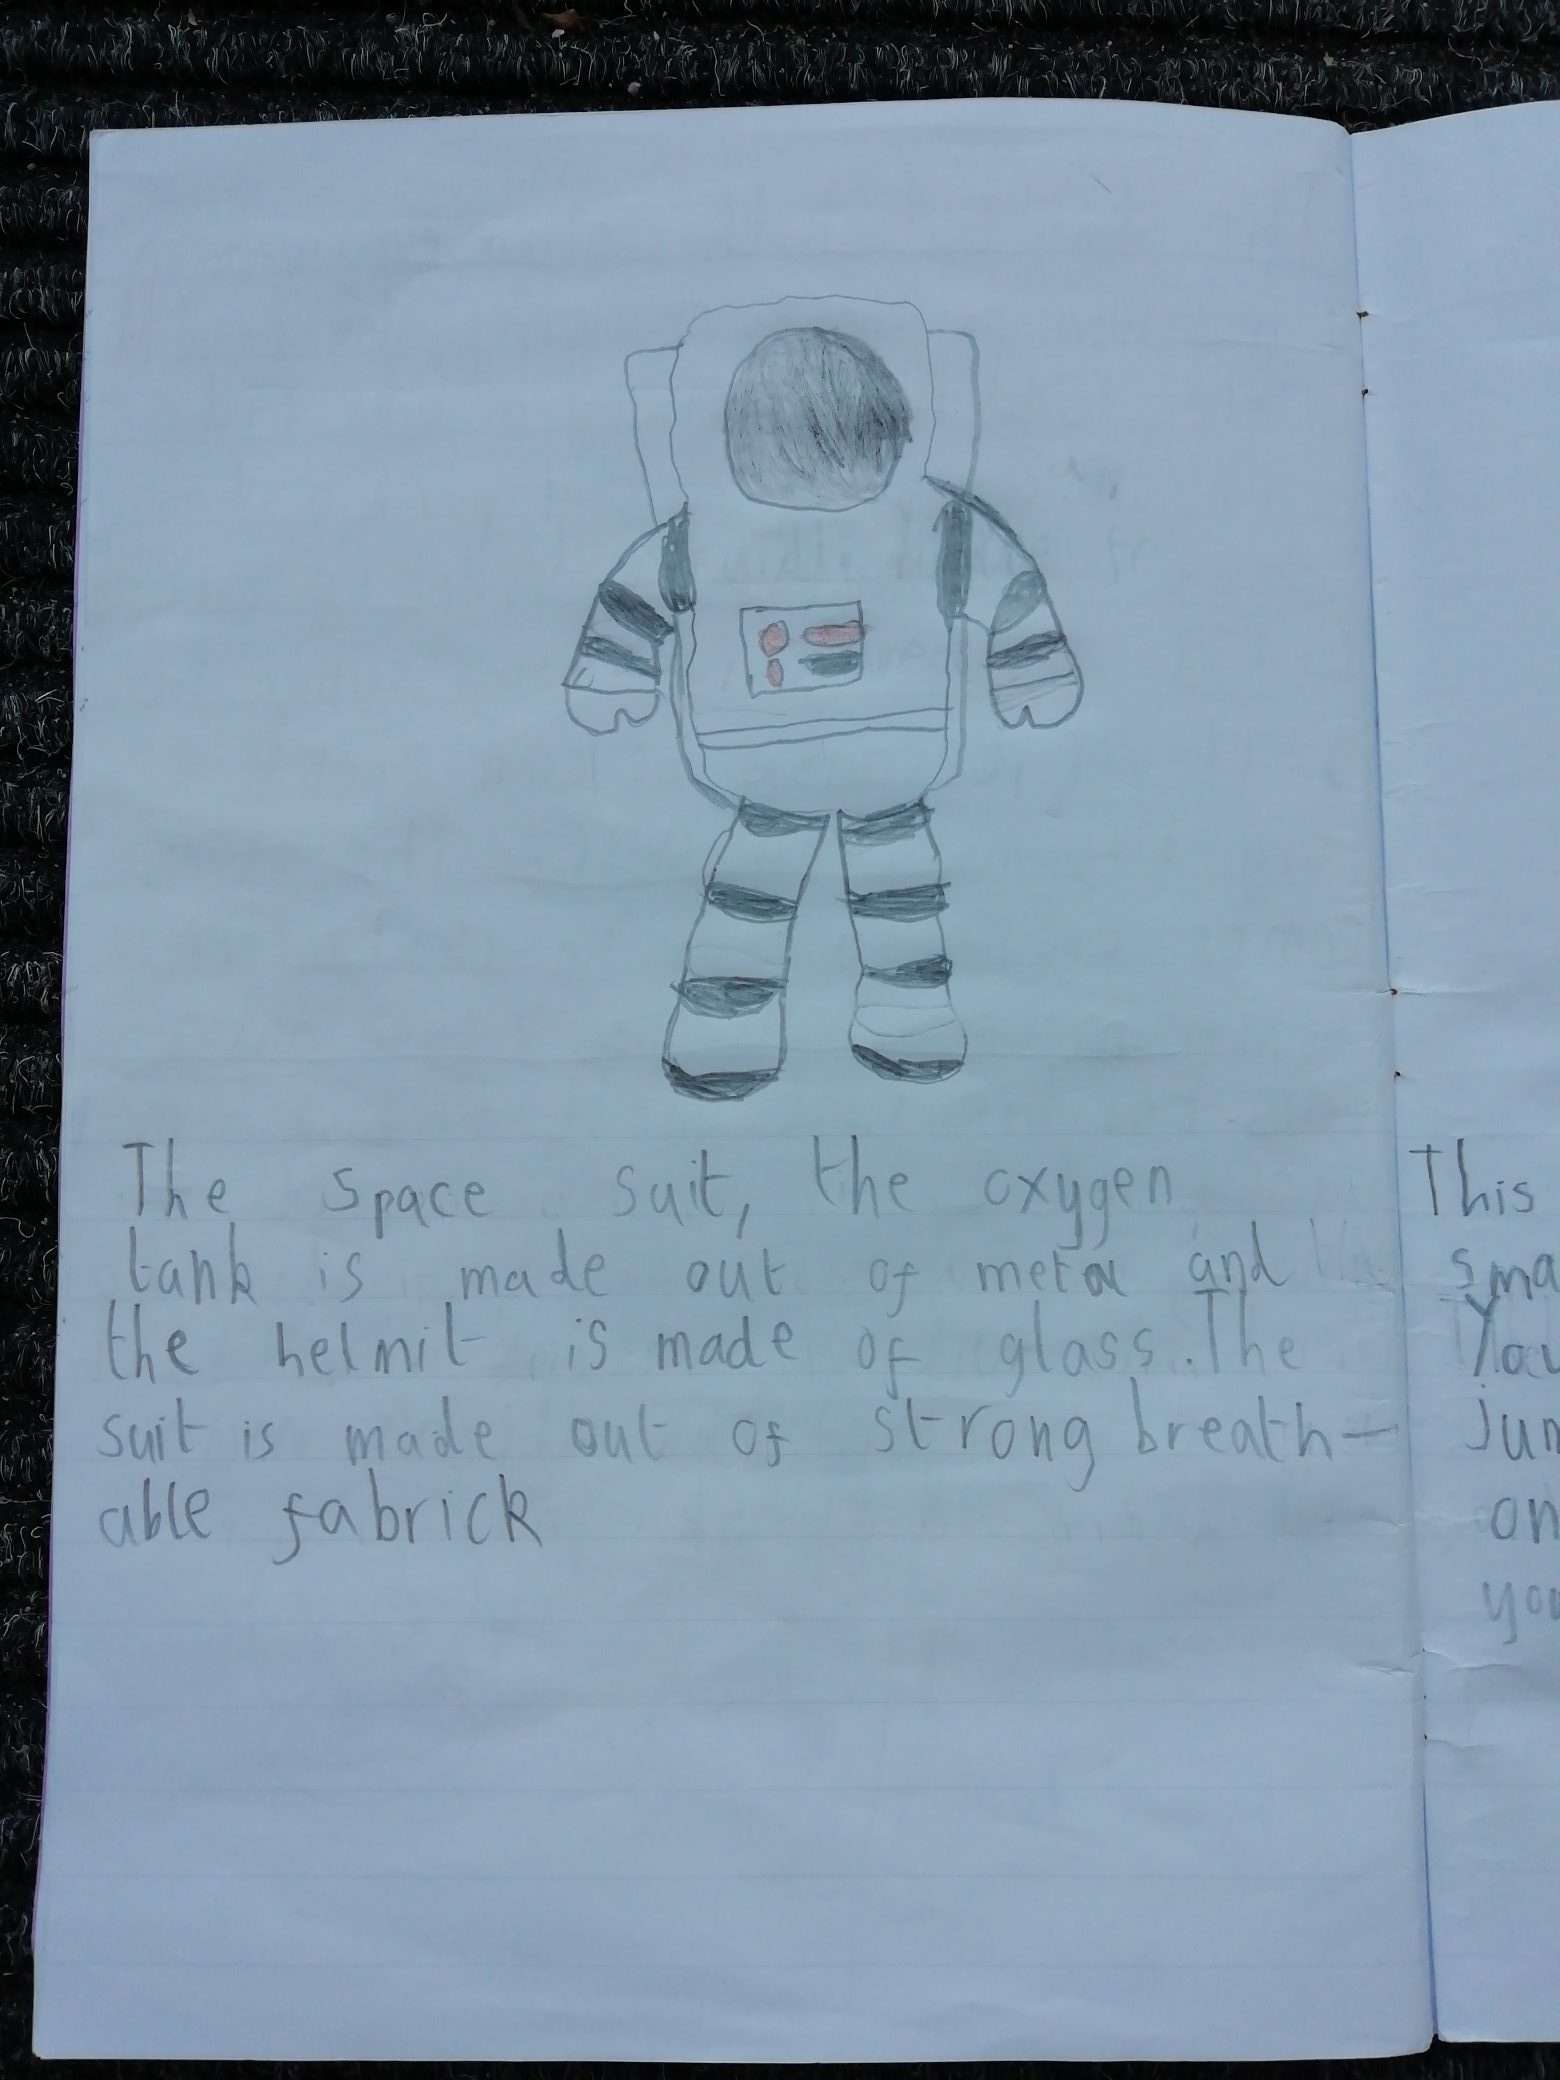 The space suit, the oxygen
tank is made out of metal and
the helmit is made of glass. The
suit is made out of strong breath-
able fabrick
This
sma
You
jum
on
you